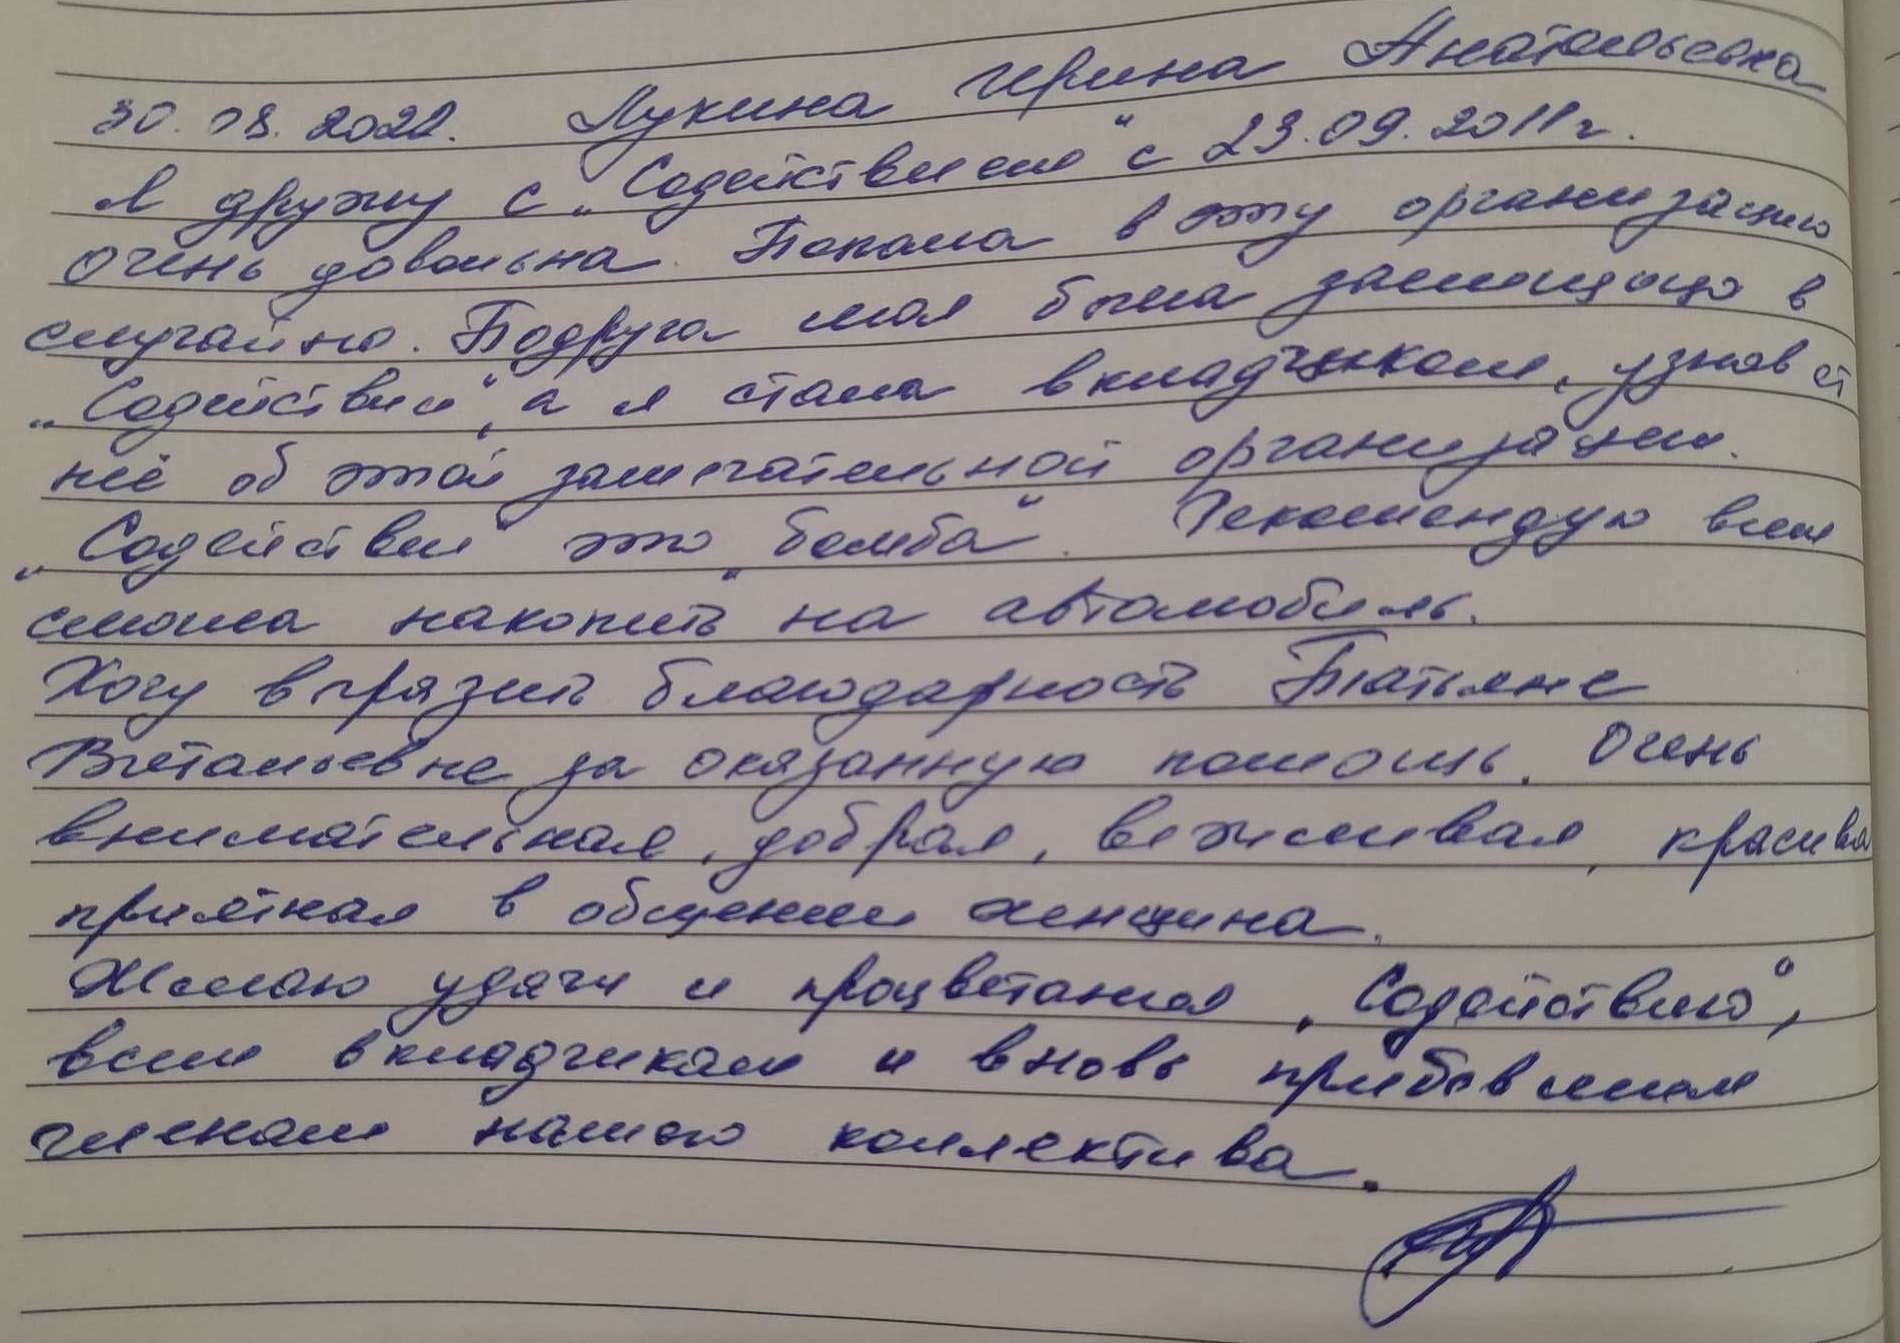 30.08.2022. Лукина Ирина Анатольевна
Я дружу с „Содействием“ с 23.09.2011г.
очень довольна. Попала в эту организацию
случайно. Подруга моя была заемщицо в
„Содействии“, а я стала вкладчиком, узнав от
неё об этой замечательной организации.
„Содействии“ это „бомба“. Рекомендую всем
смогла накопить на автомобиль.
Хочу выразить благодарность Татьяне
Витальевне за оказанную помощь. Очень
внимательная, добрая, вежливая, красива
приятная в общении женщина.
Желаю удачи и процветания „Содействию“,
всем вкладчикам и вновь прибывшим
членам нашего коллектива.